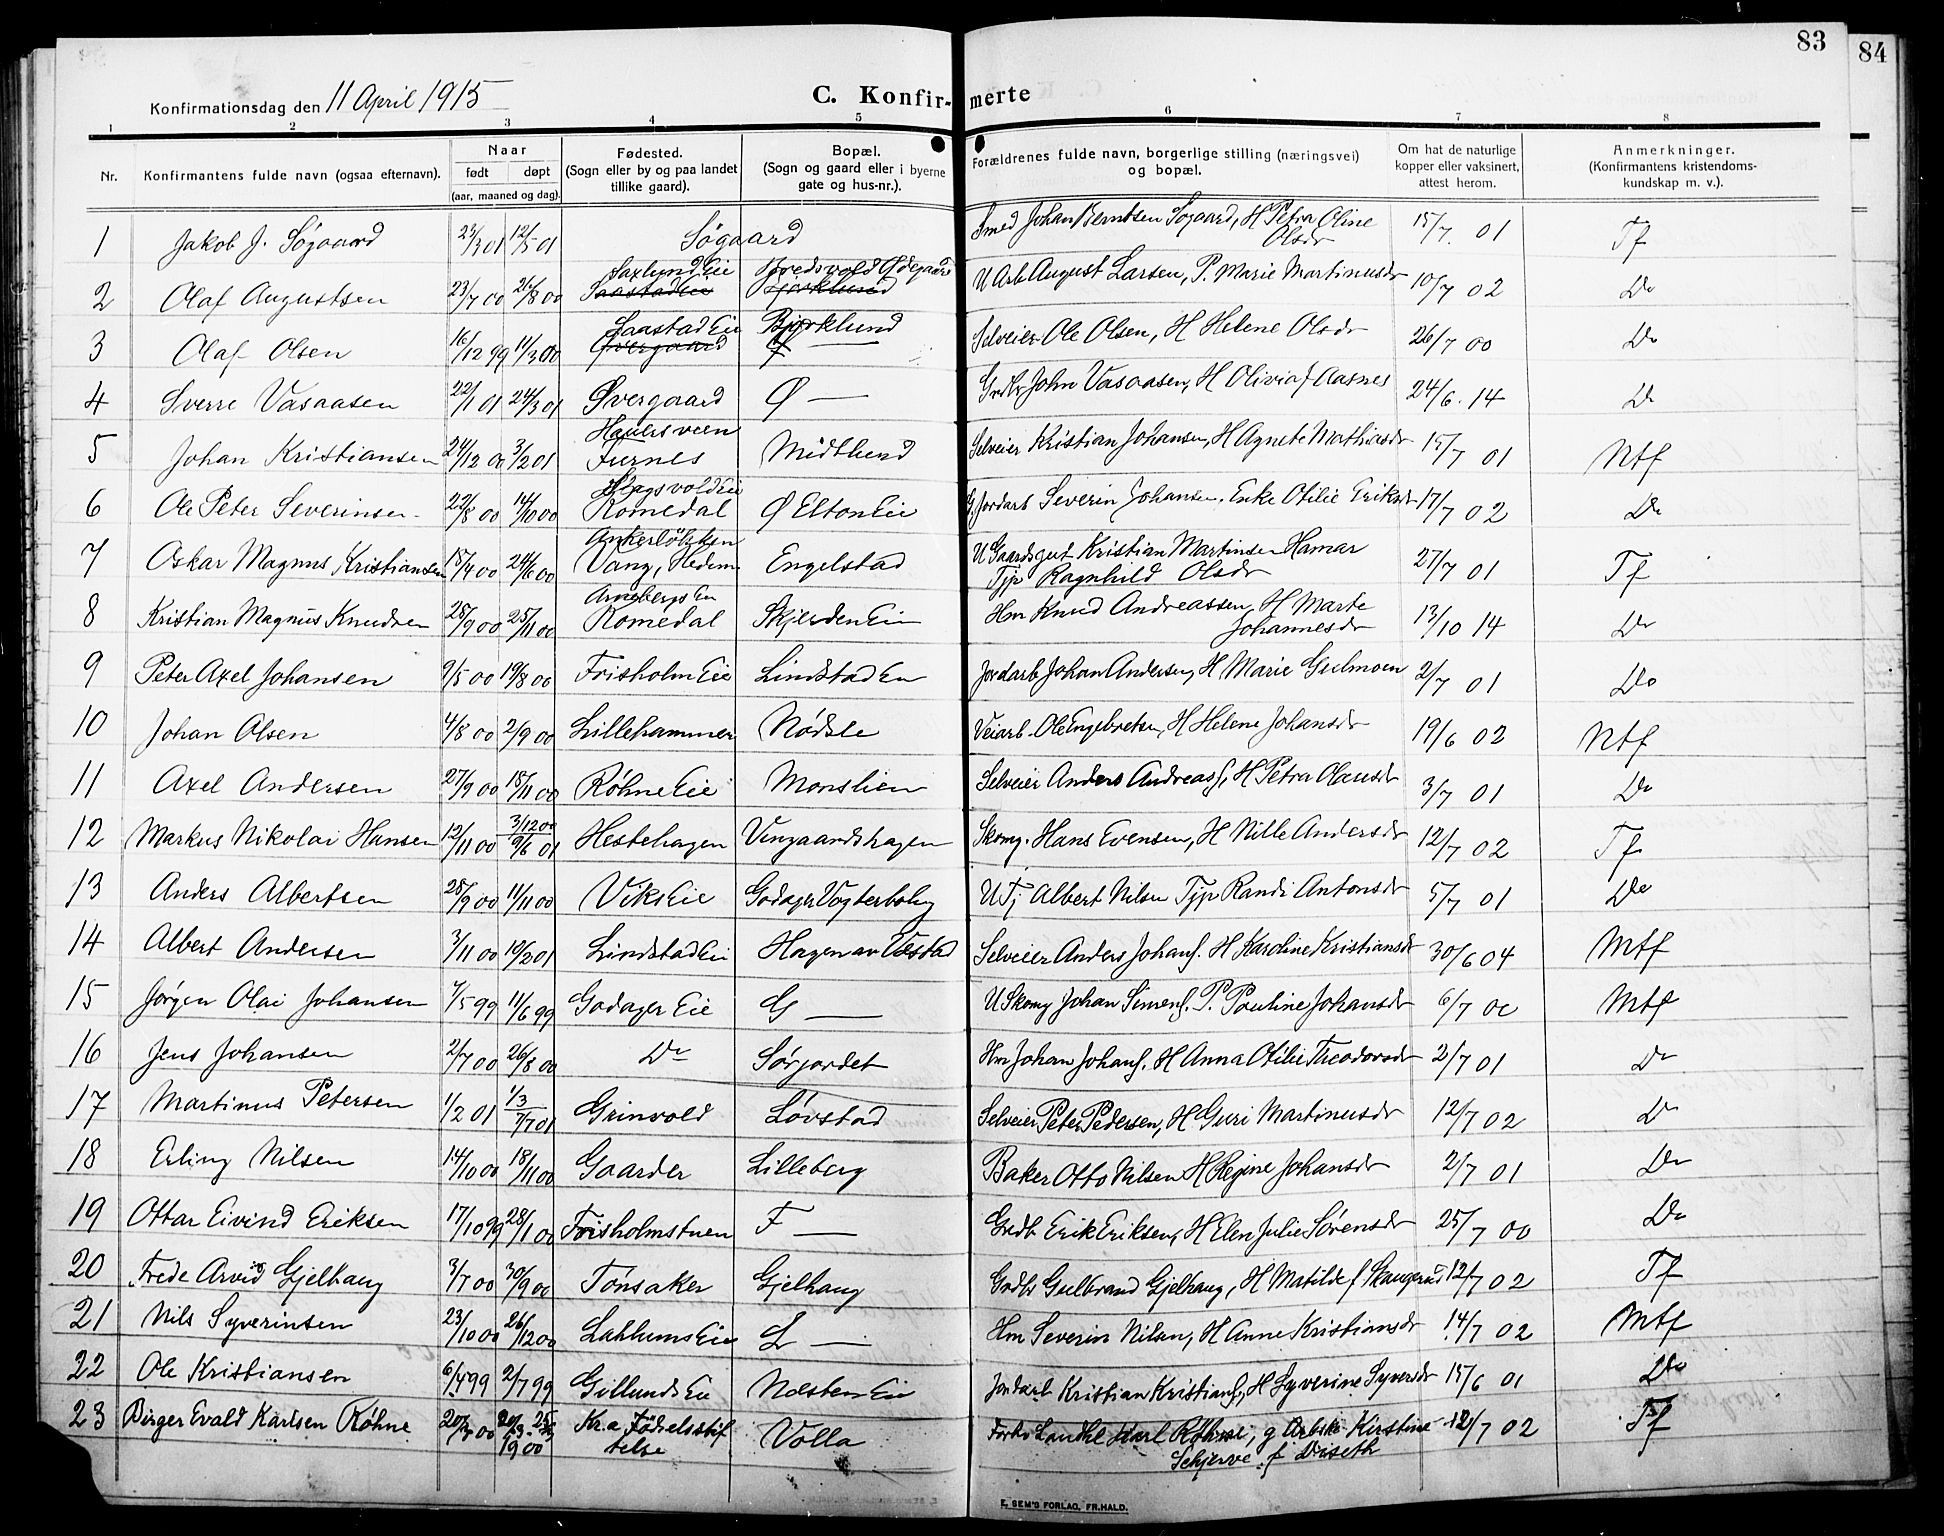 83
84
Konfirmationsdag den 11 April 1915
C. Konfir- merte
1 2 3 4 5 6 7 8
Nr.
Konfirmantens fulde navn (ogsaa efternavn).
Naar
født døpt
(aar, maaned og dag).
Fødested.
(Sogn eller by og paa landet
tillike gaard).
Bopæl.
(Sogn og gaard eller i byerne
gate og hus-nr.).
Forældrenes fulde navn, borgerlige stilling (næringsvei)
og bopæl.
Om hat de naturlige
kopper eller vaksinert,
attest herom.
Anmerkninger.
(Konfirmantens kristendoms-
kundskap m. v.).
1 Jakob J. Søgaard 23/3 01 12/5 01 Søgaard Smed Johan Berntsen Søgaard, H Petra Oline Olsdr 15/7. 01 Tf
2 Olaf Augustsen 23/7 00 26/8 00 Saxlund Eie Saastad Eie Bredsvold Ødegaard Bjørklund U Arb August Larsen, P. Marie Martinusdr 10/7 02 Do
3 Olaf Olsen 16/12 99 11/3 00 Saastad Eie Øvergaard Bjørklund Selveier Ole Olsen, H Helene Olsdr 26/7 00 Do
4 Sverre Vasaasen 22/1 01 24/3 01 Øvergaard Ø — Grdbr John Vasaasen, H Olivia f Aasnes 24/6. 14 Do
5 Johan Kristiansen 24/12 00 3/2 01 Furnes Midtlund Selveier Kristian Johansen, H Agnete Mathiasdr 15/7 01 Mtf
6 Ole Peter Severinsen 22/8 00 14/10 00 Romedal Ø Elton Eie G Jordarb Severin Johansen, Enke Otilie Eriksdr 17/7 02 Do
7 Oskar Magnus Kristiansen 15/4 00 24/6 00 Ankerløkken Vang, Hedem Engelstad U Gaardsgut Kristian Martinsen Hamar Tjp Ragnhild Olsdr 27/7 01 Tf
8 Kristian Magnus Knudsen 28/9 00 25/11 00 Arneberg Eie Romedal Skjerden Eie Hm Knud Andreassen, H Marte Johannesdr 13/10 14 Do
9 Peter Axel Johansen 9/5 00 19/8 00 Frisholm Eie Lindstad Eie Jordarb Johan Andersen, H Marie Gulmoen 2/7 01 Do
10 Johan Olsen 4/8 00 2/9 00 Lillehammer Nødsle Veiarb. Ole Engebretsen, H Helene Johansdr 19/6 02 Mtf
11 Axel Andersen 27/9 00 18/11 00 Røhne Eie Monslien Selveier Anders Andreasf, H Petra Olausdr 3/7 01 Do
12 Markus Nikolai Hansen 12/11 00 3/12 00 9/6 01 Hestehagen Vingaardshagen Skomg. Hans Evensen, H Nille Andersdr 12/7 02 Tf
13 Anders Albertsen 28/9 00 11/11 00 Viks Eie Godager Vogterbolig U Tj Albert Nilsen Tjp Randi Antonsdr 5/7 01 Do
14 Albert Andersen 3/11 00 10/2 01 Lindstad Eie Hagen av Vestad Selveier Anders Johansf. H Karoline Kristiansdr 30/6 04 Mtf
15 Jørgen Olai Johansen 7/5 99 11/6 99 Godager Eie G — U Skomg Johan Simensf. P. Pauline Johansdr 6/7 00 Mtf
16 Jens Johansen 2/7 00 26/8 00 Do Sørjordet Hm Johan Johansf. H Anna Otilie Theodorsdr 2/7 01 Do
17 Martinus Petersen 1/2 01 1/3 7/7 01 Grinvold Løvstad Selveier Peter Pedersen, H Guri Martinusdr 12/7 02 Do
18 Erling Nilsen 14/10 00 18/11 00 Gaarder Lilleberg Baker Otto Nilsen H Regine Johansdr 2/7 01 Do
19 Ottar Eivind Eriksen 17/10 99 28/1 00 Frisholmstuen F — Grdb Erik Eriksen, H Elen Julie Sørensdr 25/7 00 Do
20 Frede Arvid Gjelhaug 3/7 00 30/9 00 Tønsaker Gjelhaug Grdbr Gulbrand Gjelhaug, H Matilde f Skaugerud 12/7 02 Tf
21 Nils Syverinsen 23/10 00 26/12 00 Lahlums Eie L — Hm Severin Nilsen, H Anne Kristiansdr 14/7 02 Mtf
22 Ole Kristiansen 6/4 99 2/7 99 Gillunds Eie Næsten Eie Jordarb Kristian Kristiansf, H Syverine Syversdr 15/6 01 Do
23 Birger Evald Karlsen Røhne 20/3 00 1900 Kr.a Fødselsstiftelse Volla Forhv Landhl Karl Røhne, g Arbske Kirstine Schjerve f Diseth 12/7 02 Tf
E. SEM'S FORLAG, FR.HALD.